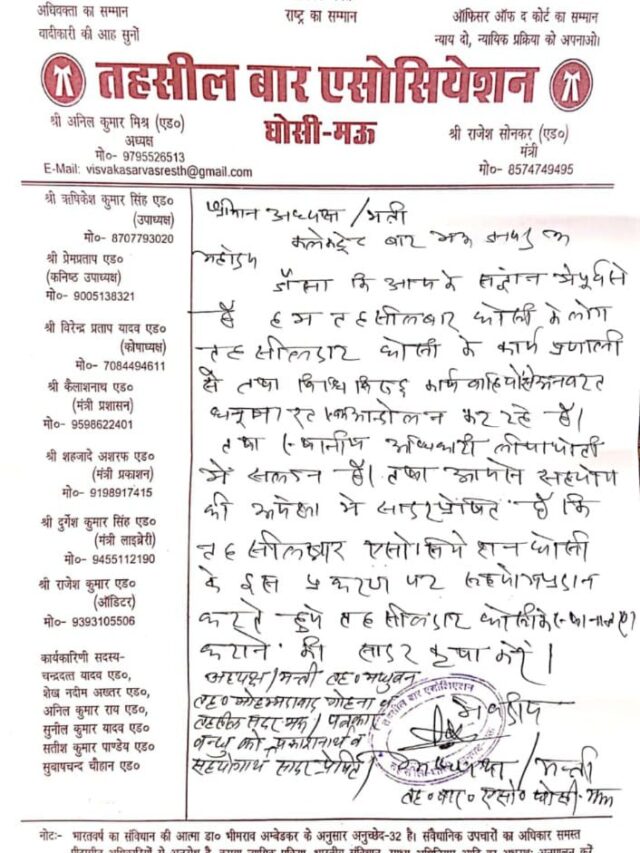 अधिवक्ता का सम्मान
राष्ट्र का सम्मान
ऑफिसर ऑफ द कोर्ट का सम्मान
वादीकारी की आह सुनों
न्याय दो, न्यायिक प्रक्रिया को अपनाओ।
तहसील बार एसोसियेशन
घोसी-मऊ
श्री अनिल कुमार मिश्र (एड०)
अध्यक्ष
मो०- 9795526513
E-Mail: visvakasarvasresth@gmail.com
श्री राजेश सोनकर (एड०)
मंत्री
मो०- 8574749495
श्री ऋषिकेश कुमार सिंह एड०
(उपाध्यक्ष)
मो०- 8707793020
श्री प्रेमप्रताप एड०
(कनिष्ठ उपाध्यक्ष)
मो०- 9005138321
श्री विरेन्द्र प्रताप यादव एड०
(कोषाध्यक्ष)
मो०- 7084494611
श्री कैलाशनाथ एड०
(मंत्री प्रशासन)
मो०- 9598622401
श्री शहजादे अशरफ एड०
(मंत्री प्रकाशन)
मो०- 9198917415
श्री दुर्गेश कुमार सिंह एड०
(मंत्री लाइब्रेरी)
मो०- 9455112190
श्री राजेश कुमार एड०
(ऑडिटर)
मो०- 9393105506
कार्यकारिणी सदस्य-
चन्द्रदत्त यादव एड०,
शेख नदीम अख्तर एड०,
अनिल कुमार राय एड०,
सुनील कुमार यादव एड०
सतीश कुमार पाण्डेय एड०
सुबाषचन्द चौहान एड०
श्रीमान अध्यक्ष / मंत्री
कलेक्ट्रेट बार मऊ जनपद मऊ
महोदय
जैसा कि आपके संज्ञान मे पूर्व से
है हम तहसीलबार घोसी के लोग
तहसीलदार घोसी के कार्य प्रणाली
से तथा किये कार्यवाहियों से अनवरत
आन्दोलन कर रहे है।
तथा स्थानीय अधिकारी लीपापोती
में संलग्न है। तथा आपसे सहयोग
की अपेक्षा मे सादर प्रेषित है कि
तहसीलबार एसोसियेशन घोसी
के इस प्रकरण पर सहयोग प्रदान
करते हुये तहसीलदार घोसी के स्थानान्तरण
कराने की सादर कृपा करें।
अध्यक्ष / मन्त्री तह० मधुबन
तह० मोहम्मदाबाद गोहना व
तहसील सदर मऊ / पत्रकार
बन्धु को प्रकाशनार्थ व
सहयोगार्थ सादर प्रेषित।
तहसील बार एसोसिएशन
भवदीय
अध्यक्ष / मन्त्री
तह० बार० एसो० घोसी-मऊ
नोट:- भारतवर्ष का संविधान की आत्मा डा० भीमराव अम्बेडकर के अनुसार अनुच्छेद-32 है। संवैधानिक उपचारों का अधिकार समस्त